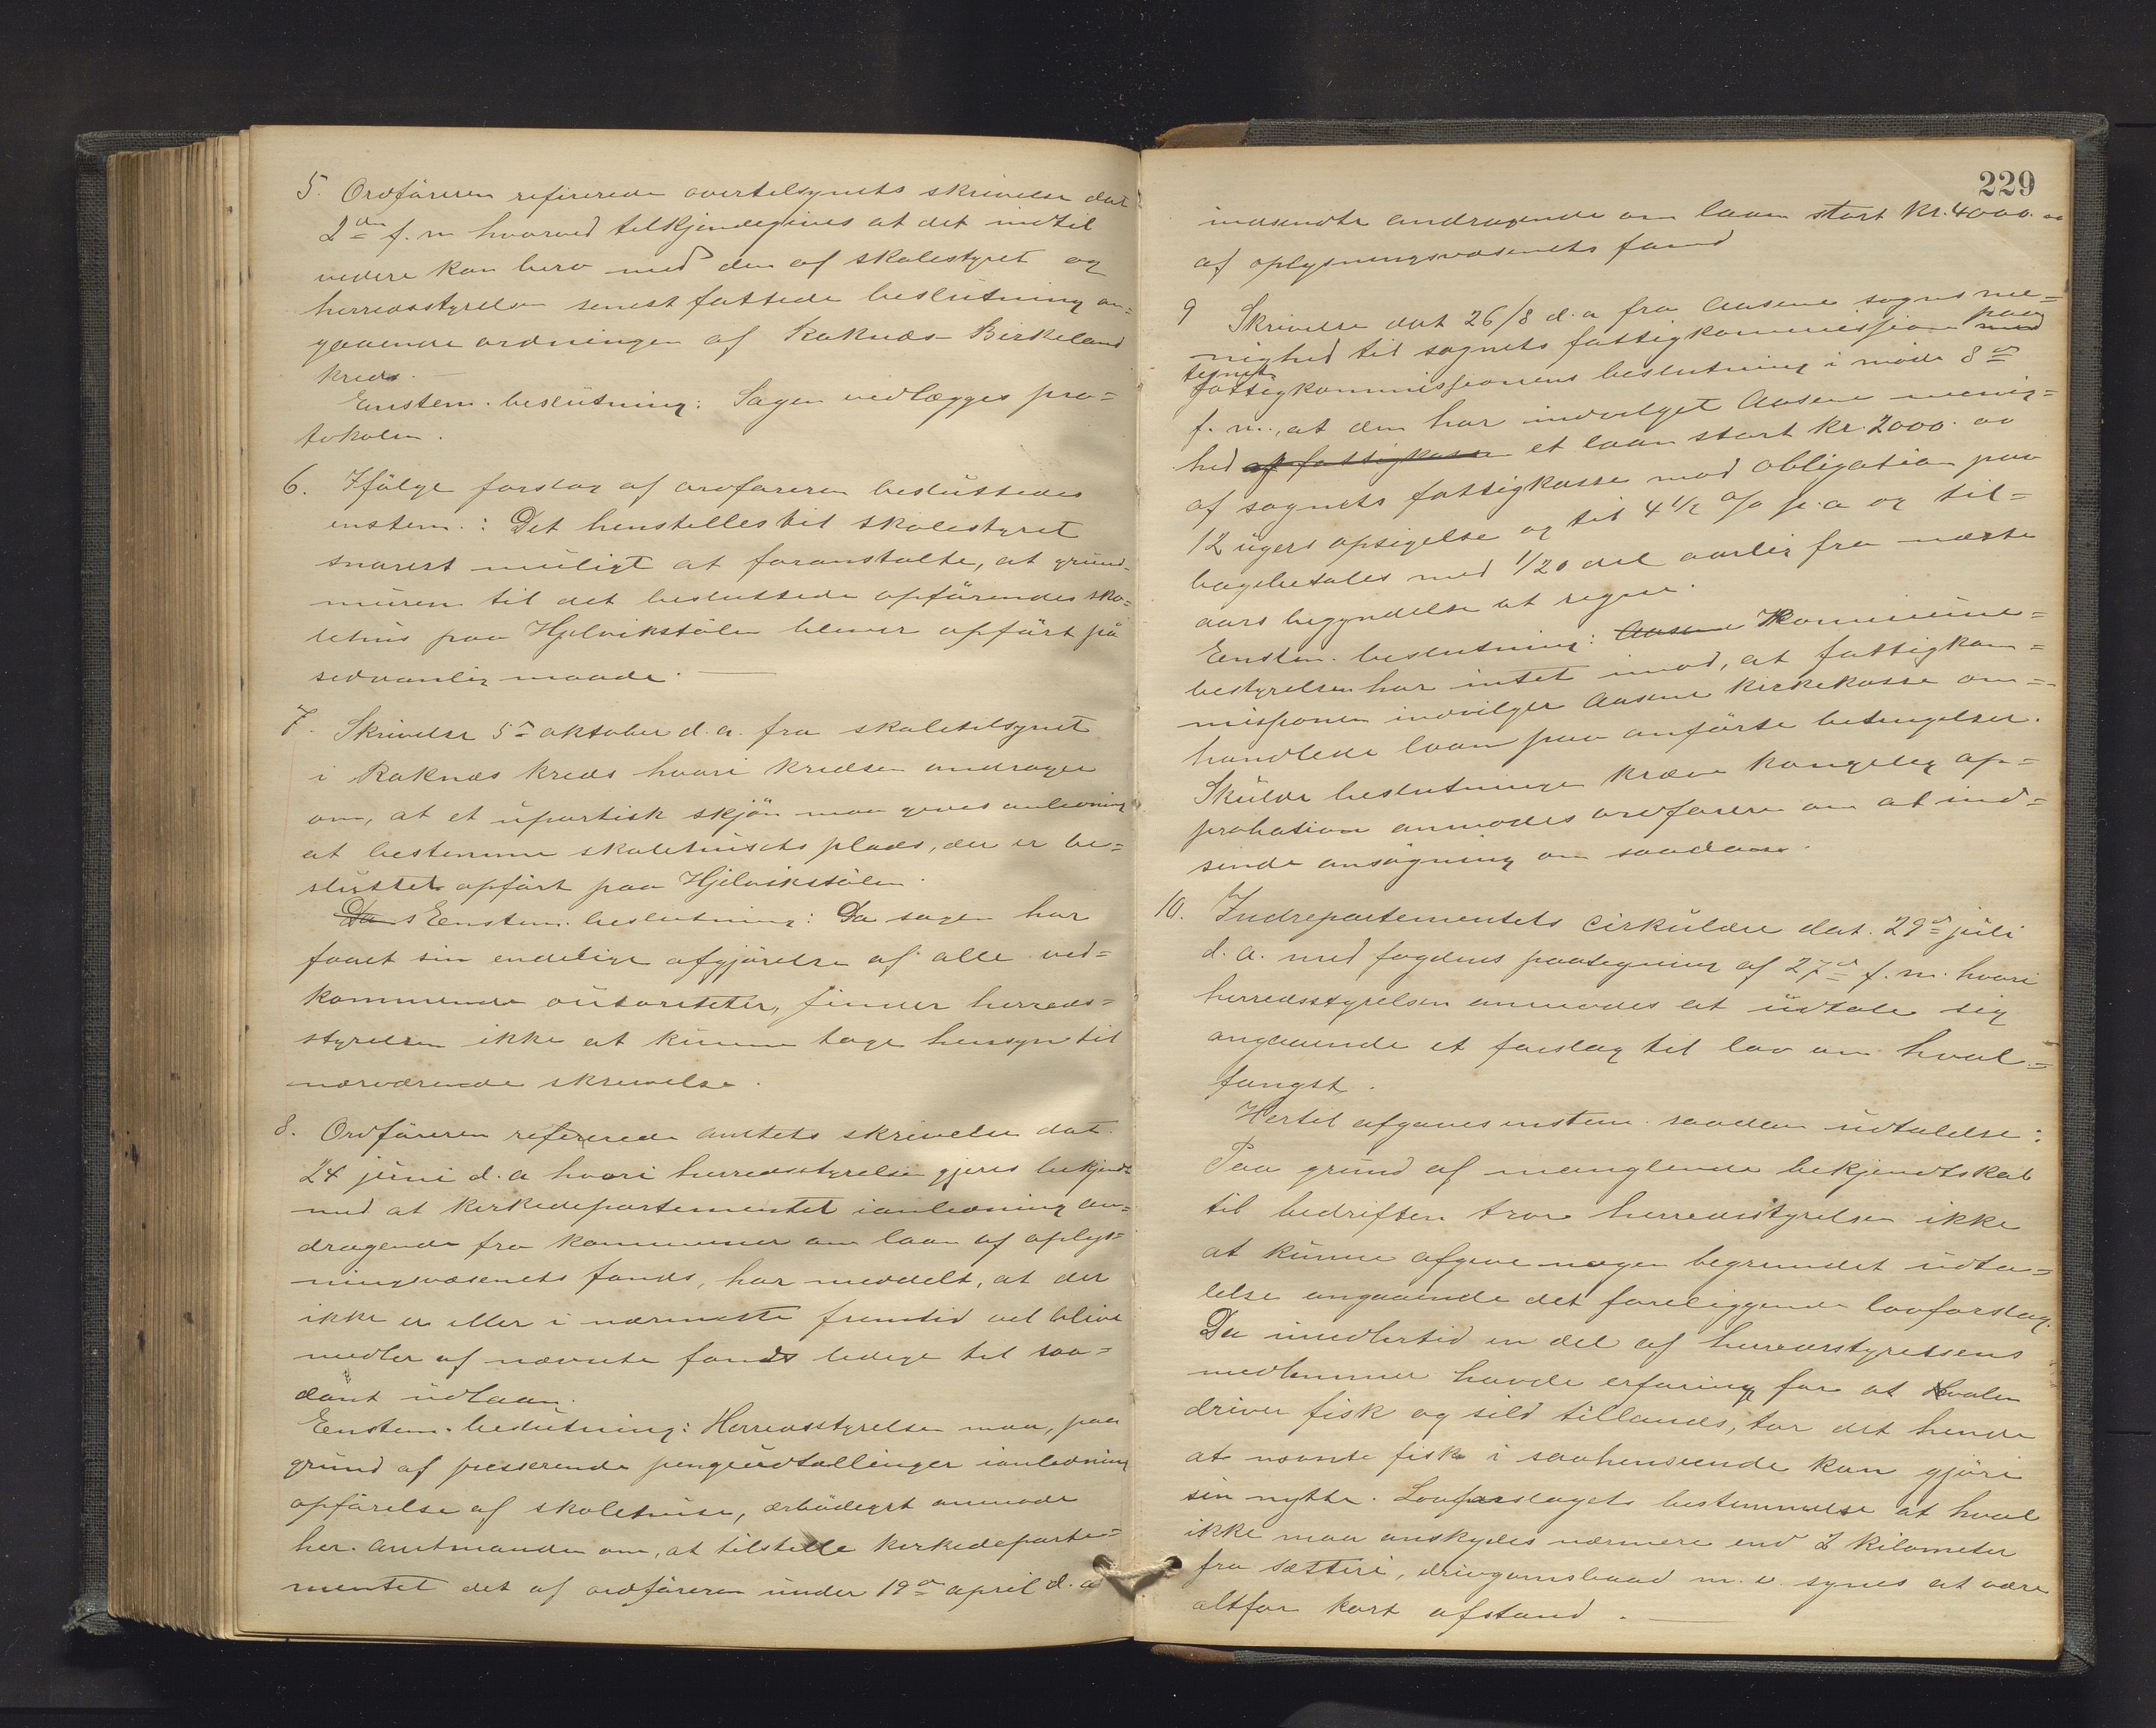 5. Ordføreren refirerede overtilsynets skrivelse dat
2den f. m hvorved tilkjendegives at det indtil
videre kan bero med den af skolestyret og
herredsstyrelsen senest fattede beslutning an=
gaaende ordningen af Raknæs-Birkeland
kreds. —
Enstem. beslutning: Sagen vedlægges pro=
tokolen.
6. Ifølge forslag af ordføreren besluttedes
enstem.: Det henstilles til skolestyret
snarest muligt at foranstalte, at grund-
muren til det besluttede opførendes sko=
lehus paa Hjelvikstølen bliver opført på
sedvanlig maade. —
7. Skrivelse 5te oktober d. a. fra skoletilsynet
i Raknæs kreds hvori kredsen andrager
om, at et upartisk skjøn maa gives anledning
at bestemme skolehusets plads, der er be=
sluttet opført paa Hjelvikstølen.
Da Eenstem. beslutning: Da sagen har
faaet sin endelige afgjørelse af alle ved=
kommende autoriteter, finder herreds=
styrelsen ikke at kunne tage hensyn til
nærværende skrivelse.
8. Ordføreren refererede amtets skrivelse dat.
24 juni d. a hvori herredsstyrelsen gjøres bekjendt
med at kirkedepartementet i anledning an=
dragende fra kommuner om laan af oplys=
ningsvæsenets fonds, har meddelt, at der
ikke er eller i nærmeste fremtid vil blive
midler af nævnte fonds ledige til saa=
dant udlaan.
Eenstem. beslutning: Herredsstyrelsen maa, paa
grund af presserende pengeudtællinger i anledning
opførelse af skolehuse, ærbødigst anmode
her. amtmanden om, at tilstille kirkedeparte=
mentet det af ordføreren under 19de april d. a
229
indsendte andragende om laan stort kr. 4000.00
af oplysningsvæsenets fond
9 Skrivelse dat 26/8 d. a fra Aasene sogns me=
nighed til sognets fattigkommission med paa
tegnet
fattigkommissionens beslutning i møde 8de
f. m., at den har indvilget Aasene menig=
hed af fattigkassen et laan stort kr. 2000.00
af sognets fattigkasse mod obligation paa
12 ugers opsigelse og til 4 1/2 % p. a og til=
bagebetales med 1/20 del aarlig fra næste
aars begyndelse at regne.
Eenstem. beslutning: Aasene Kommune=
bestyrelsen har intet imod, at fattigkom=
missionen indvilger Aasene kirkekasse om=
handlede laan paa anførte betingelser.
Skulde beslutningen kræve kongelig ap=
probation anmodes ordføreren om at ind=
sende ansøgning om saadan.
10. Indrepartementets cirkulære dat. 29de juli
d. a. med fogdens paategning af 27de f. m. hvori
herredsstyrelsen anmodes at udtale sig
angaaende et forslag til lov om hval=
fangst.
Hertil afgaves enstem. saadan udtalelse:
Paa grund af manglende bekjendtskab
til bedriften tror herredsstyrelsen ikke
at kunne afgive nogen begrundet udta=
lelse angaaende det foreliggende lovforslag.
Da imidlertid en del af herredsstyrelsens
medlemmer havde erfaring for at Hvalen
driver fisk og sild tillands, tør det hende
at nævnte fisk i saahenseende kan gjøre
sin nytte. Lovforslagets bestemmelse at hval
ikke maa anskydes nærmere end 2 kilometer
fra sætteri, drivgarnsbaad m. v. synes at være
altfor kort afstand. —